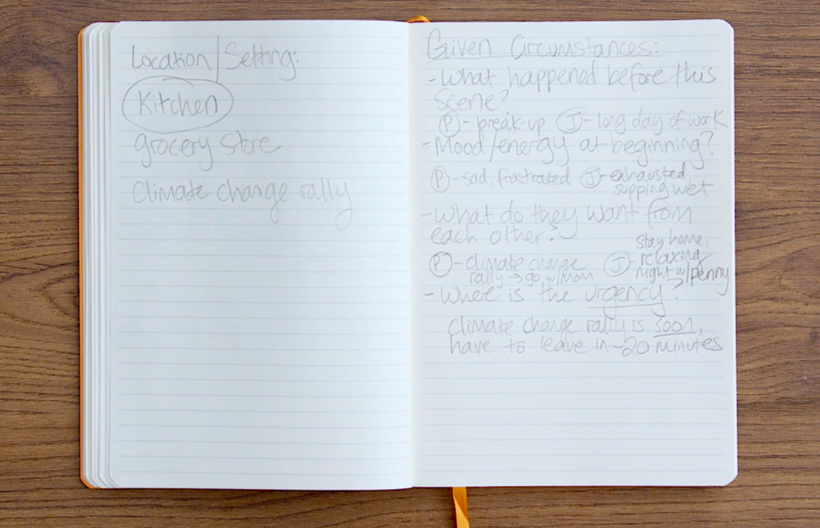 Location | Setting:
Kitchen
grocery store
Climate change rally
Given Circumstances:
- What happened before this
scene?
P - break-up J - long day of work
- Mood/energy at beginning?
P - sad, frustrated J - exhausted
sopping wet
- What do they want from
each other?
P - climate change
rally → go w/mom
J - stay home,
relaxing
night w/penny
- Where is the urgency?
Climate change rally is soon,
have to leave in ~20 minutes